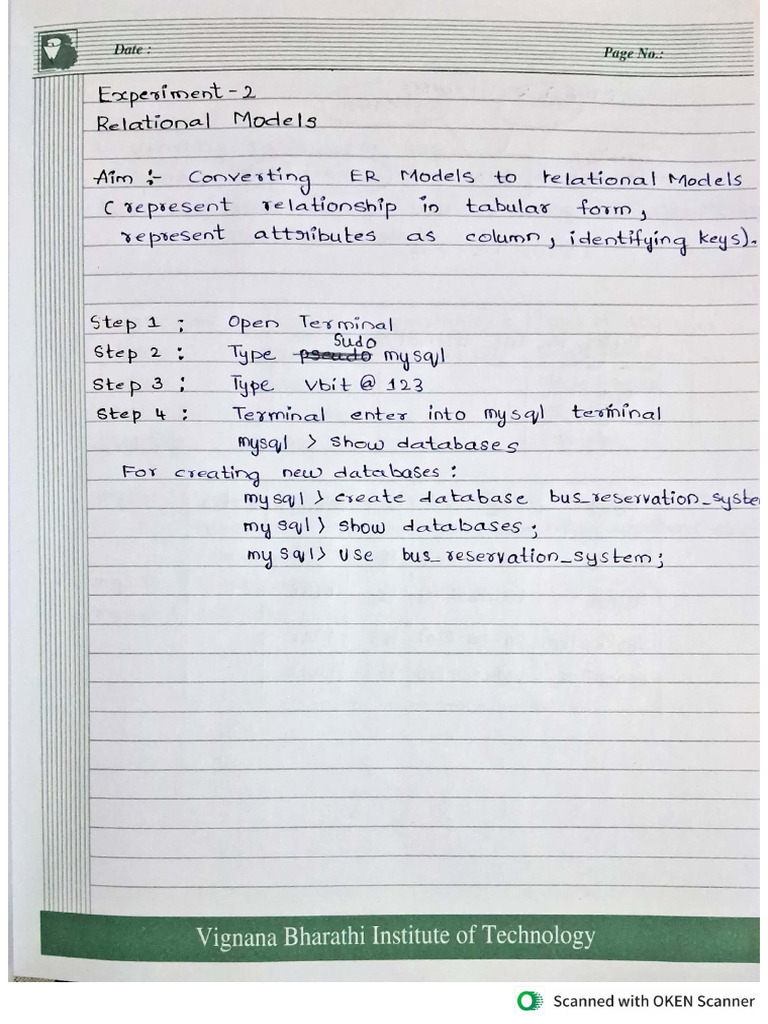 Date :
Page No.:
Experiment - 2
Relational Models
Aim :- Converting ER Models to relational Models
( represent relationship in tabular form,
represent attributes as column, identifying keys).
Step 1 : Open Terminal
Sudo
Step 2 : Type pseudo mysql
Step 3 : Type Vbit @ 123
Step 4 : Terminal enter into mysql terminal
mysql > show databases
For creating new databases :
mysql > create database bus_reservation_syste
mysql > show databases;
mysql > use bus_reservation_system;
Vignana Bharathi Institute of Technology
Scanned with OKEN Scanner